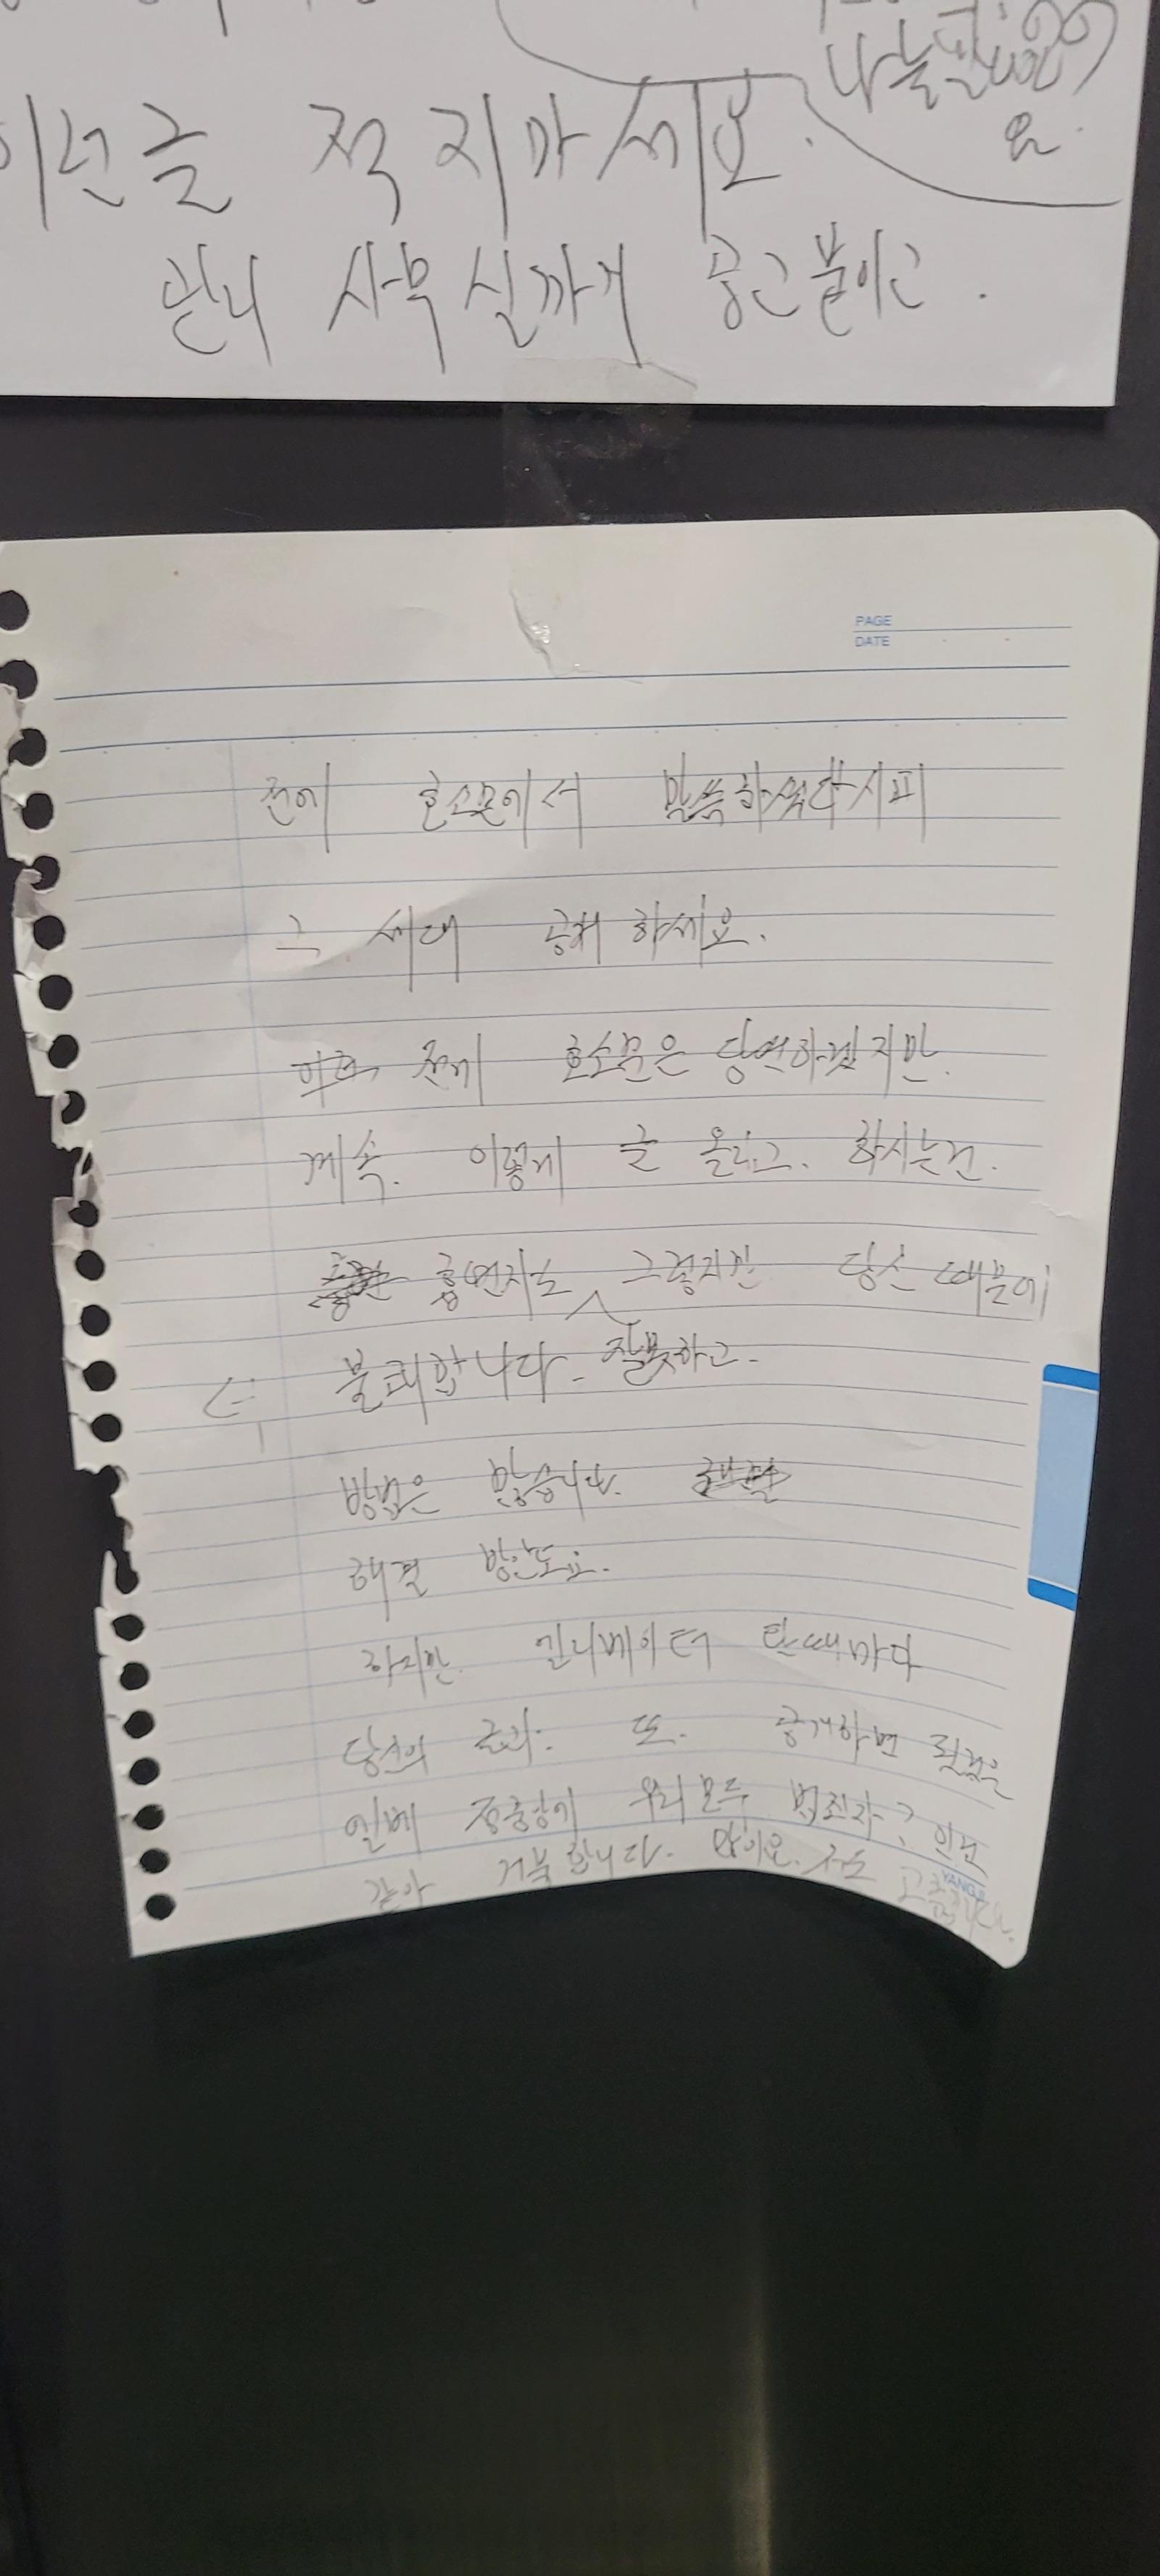 이런글 적지마세요.
관리 사무실까게 공고붙이고.
PAGE
DATE
전에 호소문에서 말씀하셨다시피
그 세대 공개 하세요.
전에 호소문은 당연하겠지만.
계속. 이렇게 글 올리고. 하시는건.
흡연자도 그렇지만 당신 때문에
불쾌합니다. 잘못하고.
방법은 많습니다.
해결 방안도요.
하지만. 엘리베이터 탈때마다
당신의 글과. 또. 공개하면 될것을
우리 모두 범죄자? 인건
같아 거북합니다. 많이요. 저도
YANGJI